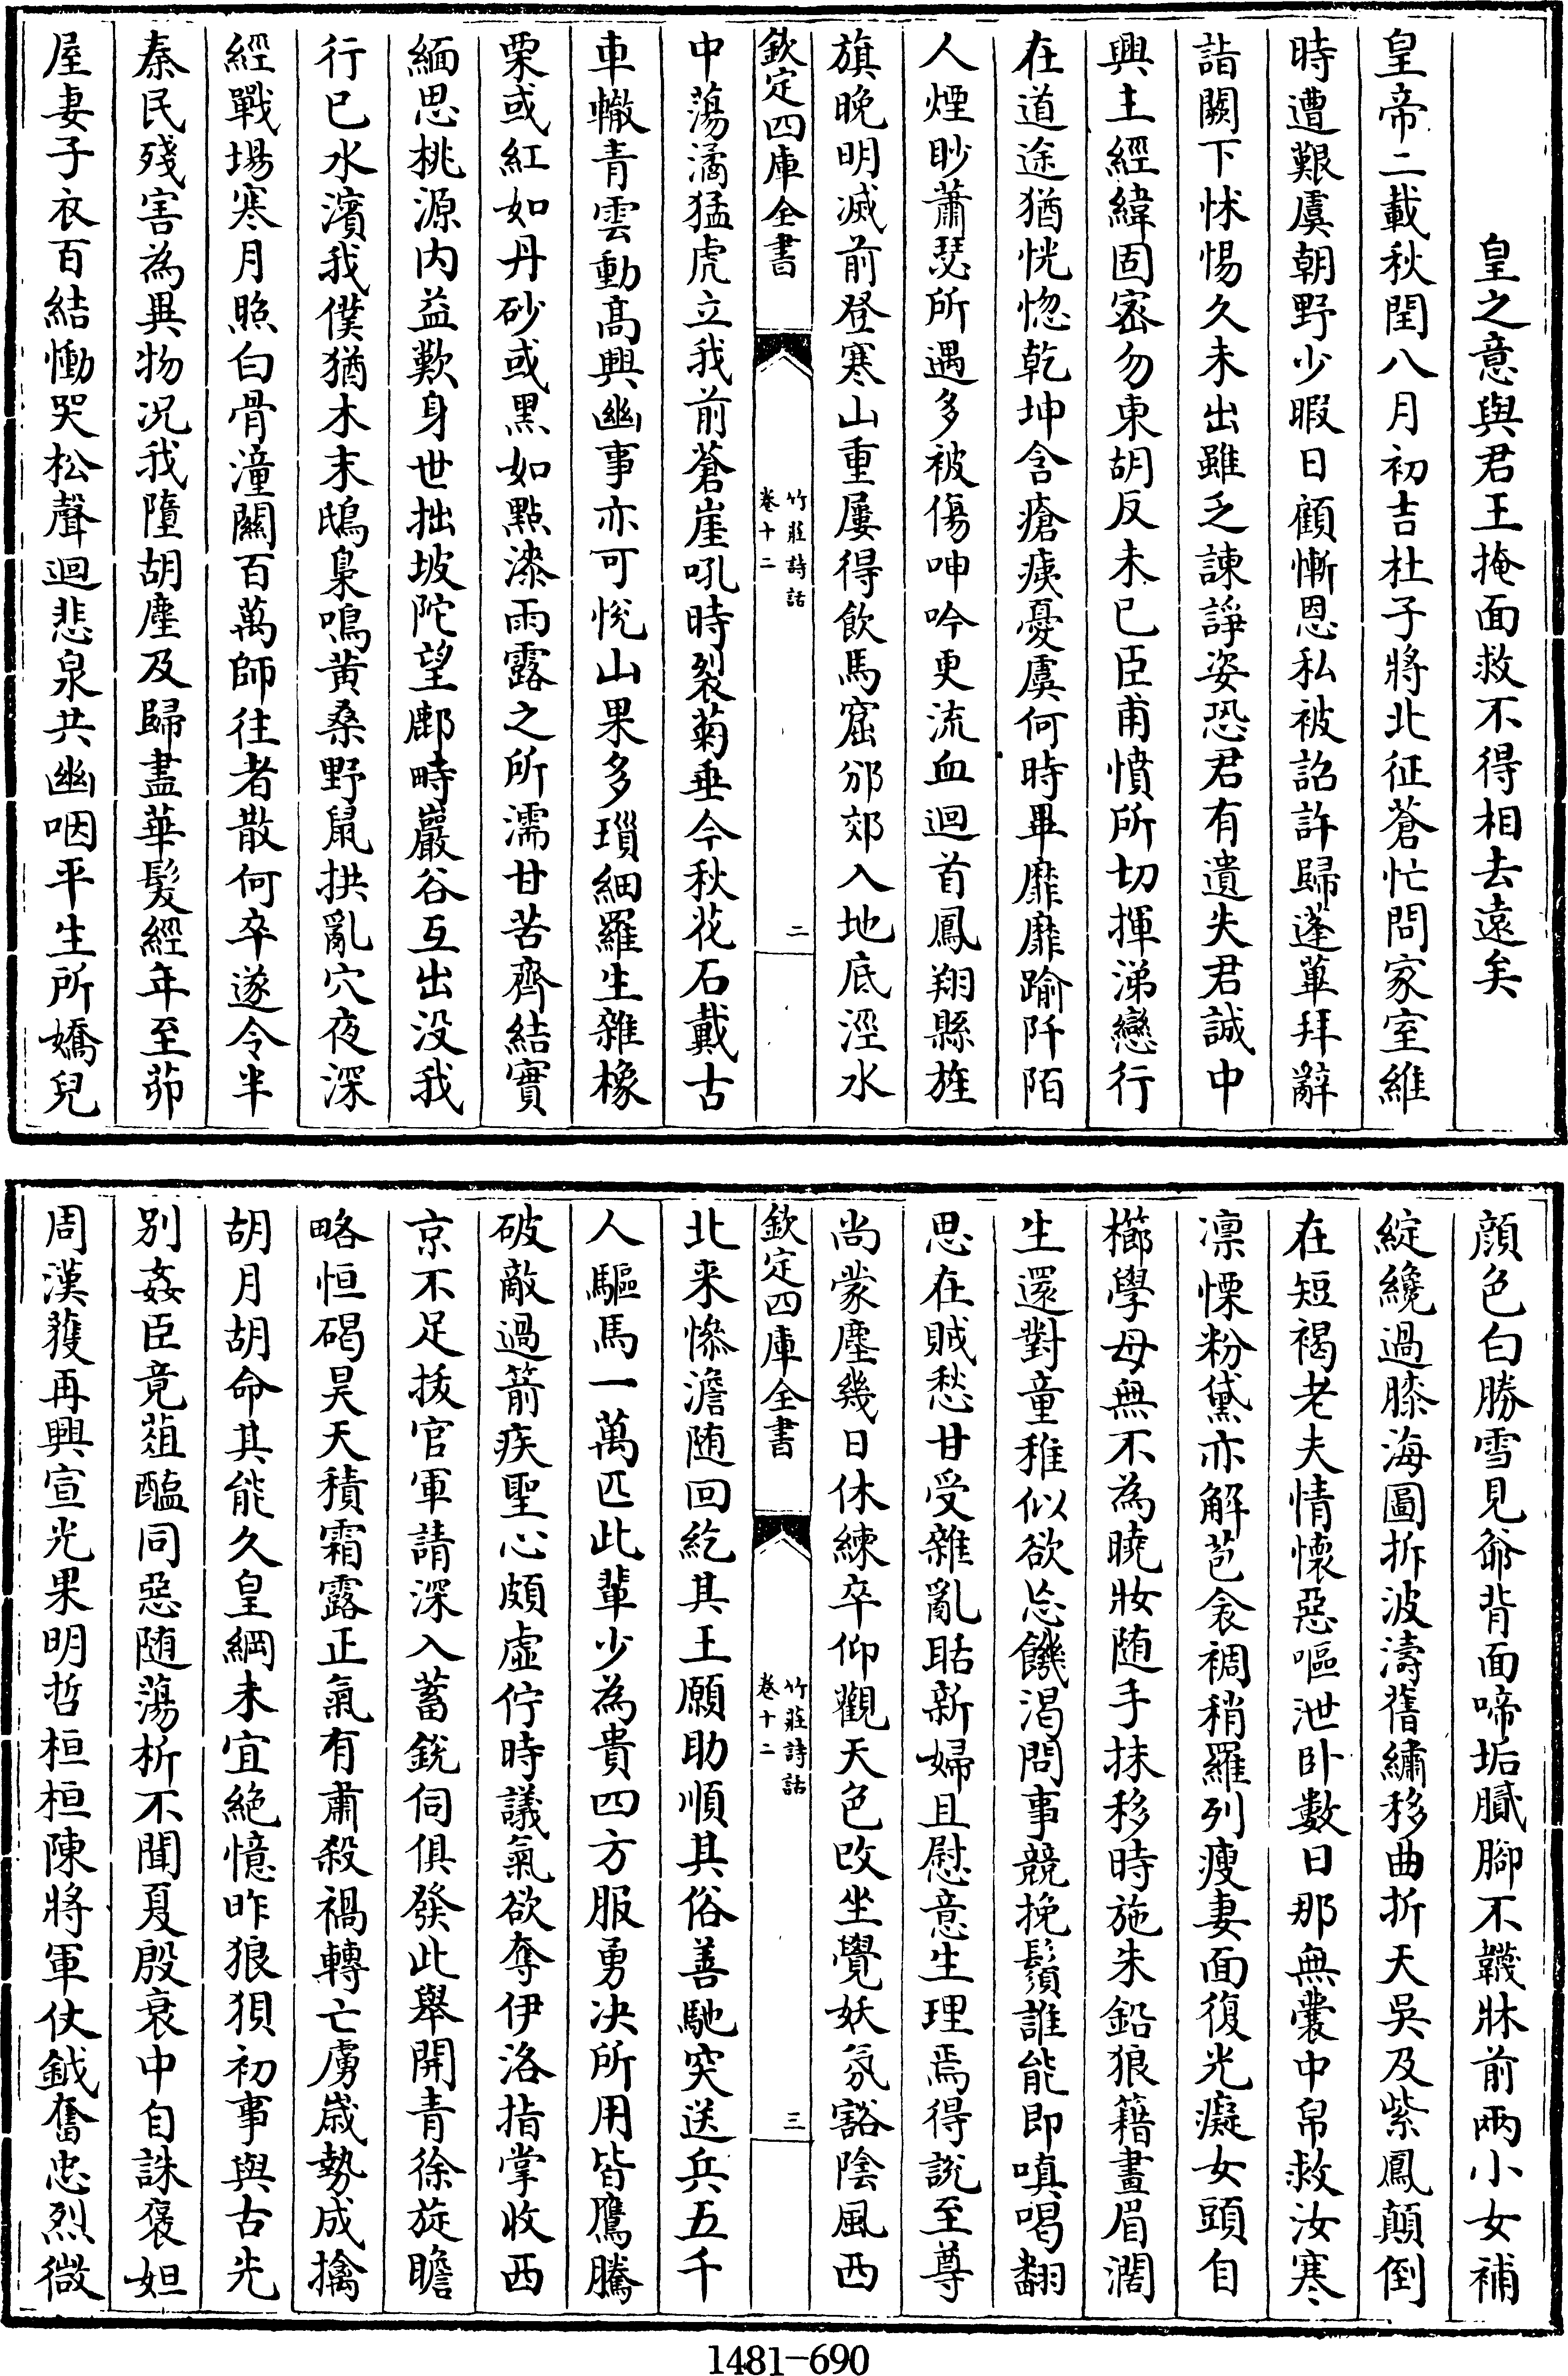 皇之意與君王掩面救不得相去遠矣
皇帝二載秋閏八月初吉杜子將北征蒼忙問家室維
時遭艱虞朝野少暇日顧慚恩私被詔許歸蓬蓽拜辭
詣闕下怵惕久未出雖乏諫諍姿恐君有遺失君誠中
興主經緯固密勿東胡反未已臣甫憤所切揮涕戀行
在道途猶恍惚乾坤含瘡痍憂虞何時畢靡靡踰阡陌
人煙眇蕭瑟所遇多被傷呻吟更流血迴首鳳翔縣旌
旗晚明滅前登寒山重屢得飲馬窟邠郊入地底涇水
欽定四庫全書
竹莊詩話
卷十二
二
中蕩潏猛虎立我前蒼崖吼時裂菊垂今秋花石戴古
車轍青雲動高興幽事亦可悅山果多瑣細羅生雜橡
栗或紅如丹砂或黑如點漆雨露之所濡甘苦齊結實
緬思桃源内益歎身世拙坡陀望鄜畤巖谷互出没我
行已水濱我僕猶木末鴟梟鳴黄桑野鼠拱亂穴夜深
經戰場寒月照白骨潼關百萬師往者散何卒遂令半
秦民殘害為異物况我墮胡塵及歸盡華髮經年至茆
屋妻子衣百結慟哭松聲迴悲泉共幽咽平生所嬌兒
顔色白勝雪見爺背面啼垢膩腳不韈牀前兩小女補
綻纔過膝海圖拆波濤舊繡移曲折天吳及紫鳳顛倒
在短褐老夫情懷惡嘔泄卧數日那無囊中帛救汝寒
凛慄粉黛亦解苞衾裯稍羅列瘦妻面復光癡女頭自
櫛學母無不為曉妝随手抹移時施朱鉛狼籍畫眉濶
生還對童稚似欲忘饑渴問事競挽鬚誰能即嗔喝翻
思在賊愁甘受雜亂聒新婦且慰意生理焉得說至尊
尚蒙塵幾日休練卒仰觀天色改坐覺妖氛豁陰風西
欽定四庫全書
竹莊詩話
卷十二
三
北来慘澹随回紇其王願助順其俗善馳突送兵五千
人驅馬一萬匹此輩少為貴四方服勇决所用皆鷹騰
破敵過箭疾聖心頗虛佇時議氣欲奪伊洛指掌收西
京不足拔官軍請深入蓄銳伺俱發此舉開青徐旋瞻
略恒碣昊天積霜露正氣有肅殺禍轉亡虜歲勢成擒
胡月胡命其能久皇綱未宜絕憶昨狼狽初事與古先
别姦臣竟葅醢同惡随蕩析不聞夏殷衰中自誅褒妲
周漢獲再興宣光果明哲桓桓陳將軍仗鉞奮忠烈微
1481-690